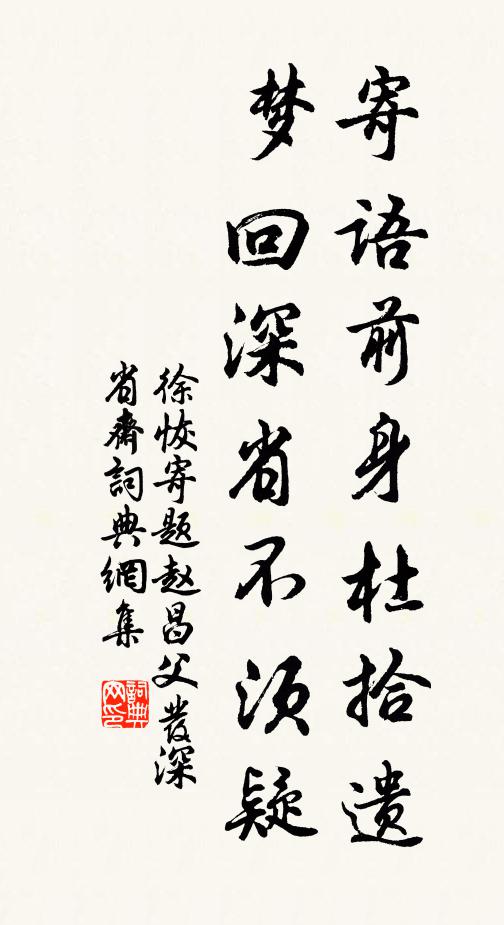 寄語前身杜拾遺
梦回深省不须疑
徐恢寄题赵昌父发深
省齋詞典網集
詞典网印